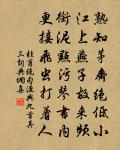 熟知茅齋絕低小
江上燕子故來頻
銜泥點污琴書內
更接飛蟲打着人
杜甫絕句漫興九首其
三詞典網集